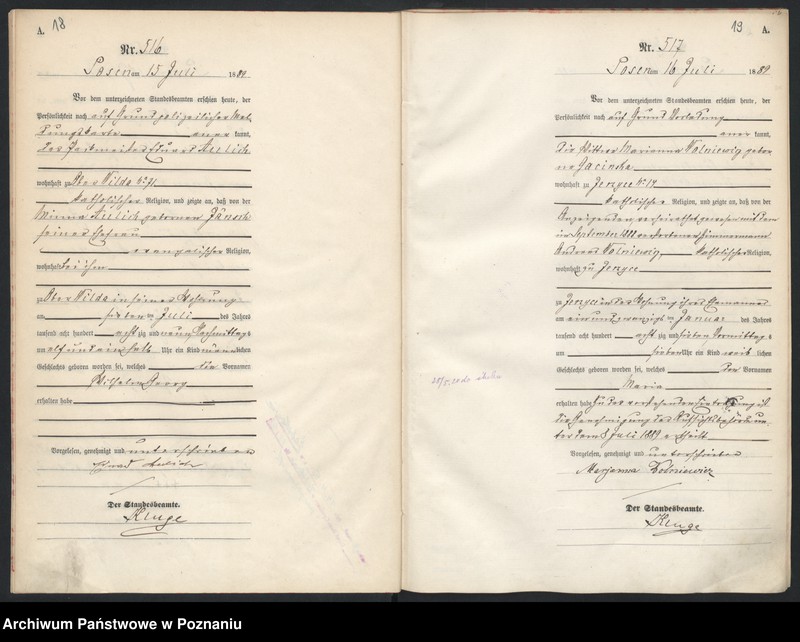 A. 18
Nr. 516
Posen am 15 Juli 1889
Vor dem unterzeichneten Standesbeamten erschien heute, der
Persönlichkeit nach auf Grund polizeilicher Mel-
dungskarte anerkannt,
wohnhaft zu Ober Wilda No 71
katholischer Religion, und zeigte an, daß von der
Minna geborenen
seiner Ehefrau
evangelischer Religion,
wohnhaft bei ihm
zu Ober Wilda in seiner Wohnung
am sieben ten Juli des Jahres
tausend acht hundert acht zig und neun Nachmittags
um elf und ein halb Uhr ein Kind männlichen
Geschlechts geboren worden sei, welches die Vornamen
Wilhelm Georg
erhalten habe
Vorgelesen, genehmigt und unterschrieben
Der Standesbeamte.
Kluge
19 A.
Nr. 517
Posen am 16 Juli 1889
Vor dem unterzeichneten Standesbeamten erschien heute, der
Persönlichkeit nach auf Grund Vorladung
anerkannt,
die Wittwe Marianna Wolniewicz gebore-
ne Jacinska
wohnhaft zu Jerzyce No 17
katholischer Religion, und zeigte an, daß von der
Anzeigenden, verheirathet gewesen mit dem
im September 1888 verstorbenen Zimmermann
Andreas Wolniewicz, katholischer Religion,
wohnhaft zu Jerzyce
zu Jerzyce in der Wohnung ihres Ehemannes
am ein und zwanzigsten Januar des Jahres
tausend acht hundert acht zig und sieben Vormittags
um sieben Uhr ein Kind weiblichen
Geschlechts geboren worden sei, welches den Vornamen
Maria
erhalten habe. Zu der vorstehenden Eintragung ist
die Genehmigung der Aufsichtsbehörde un-
ter dem 8 Juli 1889 ertheilt
Vorgelesen, genehmigt und unterschrieben
Maryanna Wolniewicz
Der Standesbeamte.
Kluge
Archiwum Państwowe w Poznaniu